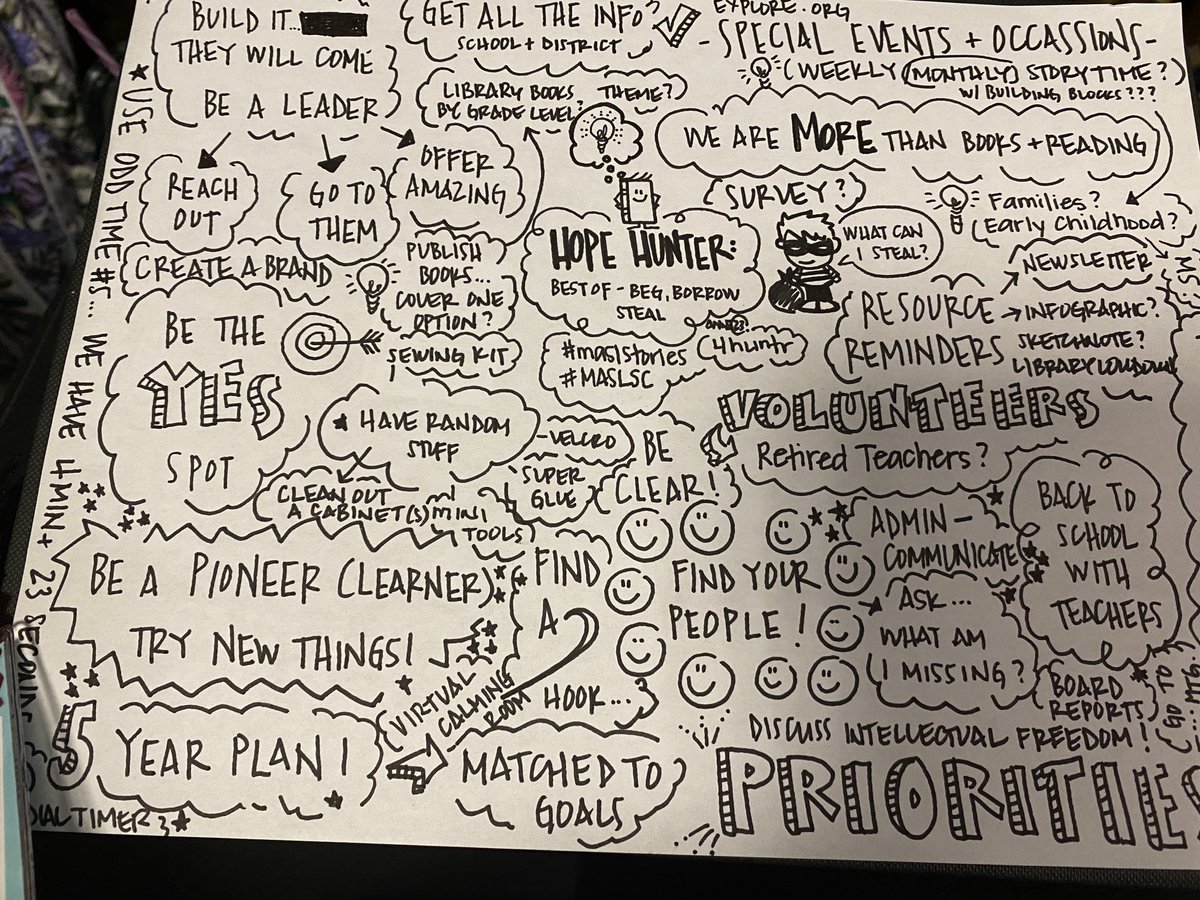 BUILD IT...
THEY WILL COME
BE A LEADER
GET ALL THE INFO
SCHOOL + DISTRICT
EXPLORE.ORG
-SPECIAL EVENTS + OCCASSIONS-
(WEEKLY (MONTHLY) STORYTIME?)
W/ BUILDING BLOCKS???
LIBRARY BOOKS
BY GRADE LEVEL?
THEME?
WE ARE MORE THAN BOOKS + READING
REACH
OUT
GO TO
THEM
OFFER
AMAZING
SURVEY?
Families?
Early Childhood?
CREATE A BRAND
PUBLISH
BOOKS...
COVER ONE
OPTION?
HOPE HUNTER:
BEST OF - BEG, BORROW
STEAL
WHAT CAN
I STEAL?
NEWSLETTER
RESOURCE
REMINDERS
INFOGRAPHIC?
SKETCHNOTE?
BE THE
YES
SPOT
SEWING KIT
#maslstories
#MASLSC
4huntr
VOLUNTEERS
Retired Teachers?
HAVE RANDOM
STUFF
-VELCRO
SUPER
GLUE
BE
CLEAR!
CLEAN OUT
A CABINET(S)
MINI
TOOLS
BE A PIONEER CLEARNER)
TRY NEW THINGS!
FIND
A
HOOK...
FIND YOUR
PEOPLE!
ADMIN-
COMMUNICATE
ASK...
WHAT AM
I MISSING?
BACK TO
SCHOOL
WITH
TEACHERS
BOARD
REPORTS
5 YEAR PLAN!
VIRTUAL
CALMING
ROOM
MATCHED TO
GOALS
DISCUSS INTELLECTUAL FREEDOM!
USE ODD TIME #S... WE HAVE 4 MIN + 23 SECONDS
TIMER